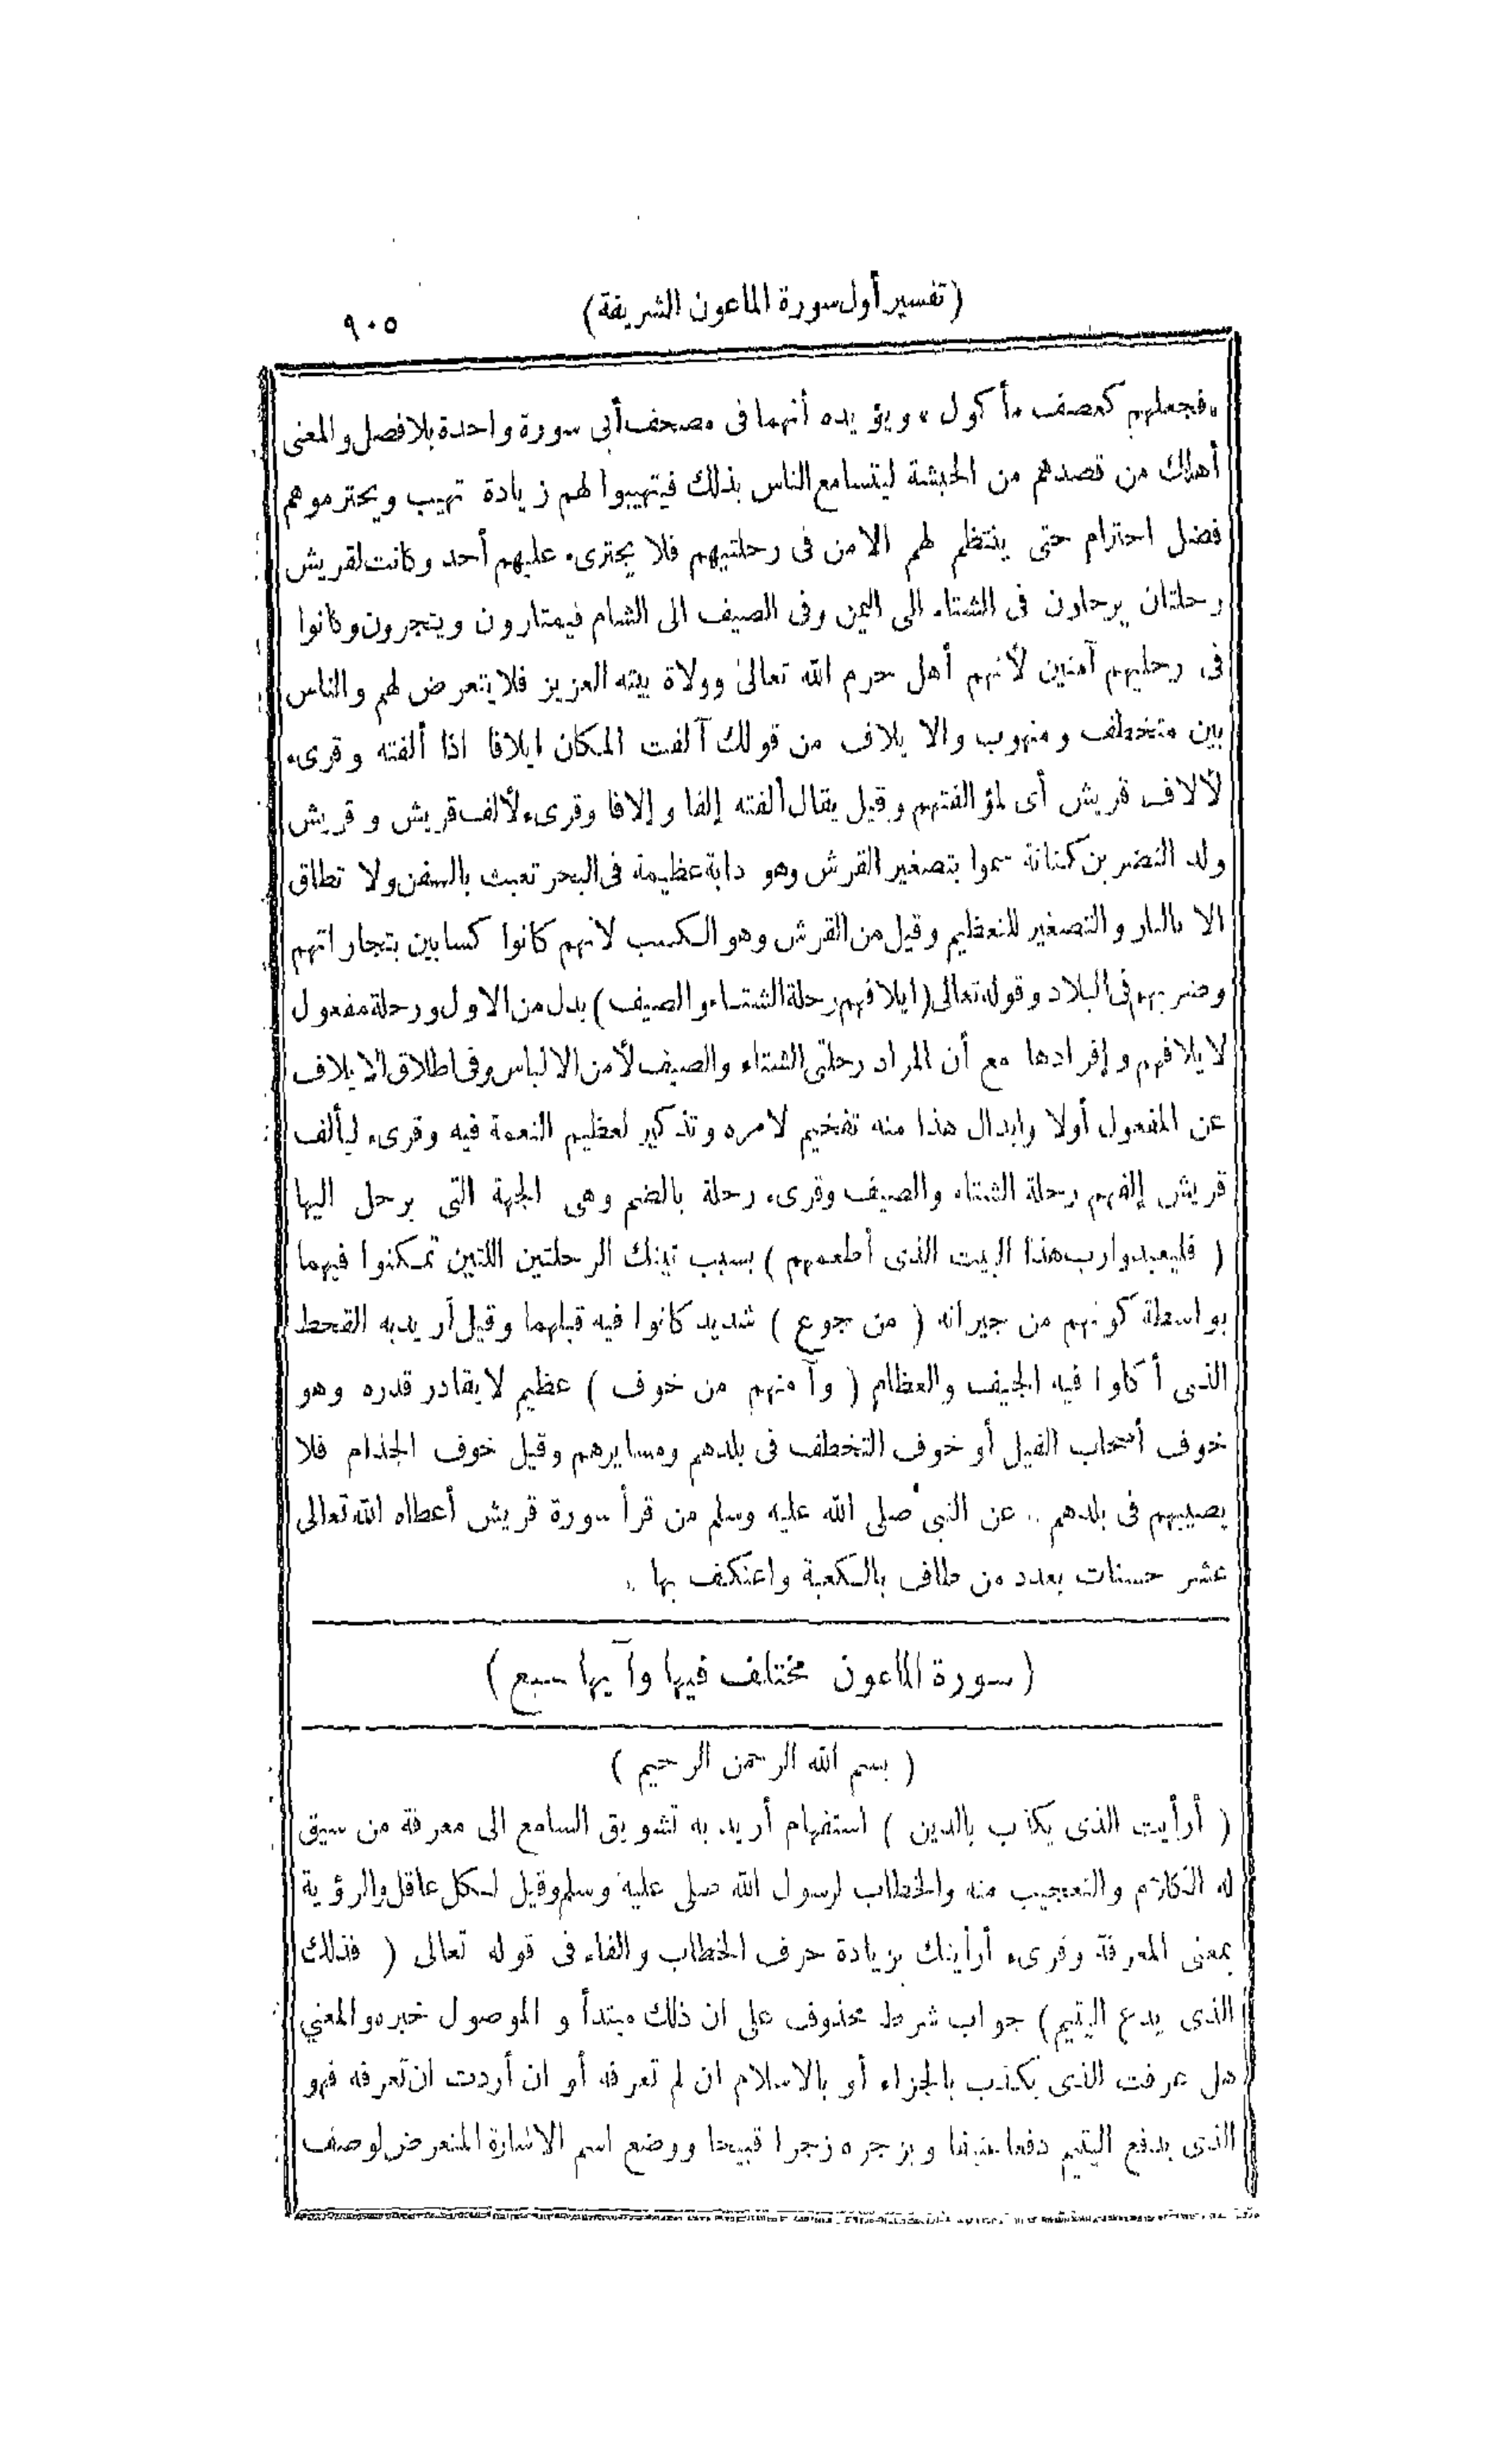 (تفسير أول سورة الماعون الشريفة)
٩٠٥
«فجعلهم كعصف مأكول» ويؤيده أنهما فى مصحف أبى سورة واحدة بلا فصل والمعنى
أهلك من قصدهم من الحبشة ليتسامع الناس بذلك فيتهيبوا لهم زيادة تهيب ويحترموهم
فضل احترام حتى ينتظم لهم الامن فى رحلتيهم فلا يجترىء عليهم أحد وكانت لقريش
رحلتان يرحلون فى الشتاء الى اليمن وفى الصيف الى الشام فيمتارون ويتجرون وكانوا
فى رحلتيهم آمنين لأنهم أهل حرم الله تعالى وولاة بيته العزيز فلا يتعرض لهم والناس
بين متخطف ومنهوب والايلاف من قولك آلفت المكان ايلافا اذا ألفته وقرىء
لألاف قريش أى لمؤالفتهم وقيل يقال ألفته إلفا وإلافا وقرىء لألف قريش وقريش
ولد النضر بن كنانة سموا بتصغير القرش وهو دابة عظيمة فى البحر تعبث بالسفن ولا تطاق
الا بالنار والتصغير للتعظيم وقيل من القرش وهو الكسب لانهم كانوا كسابين بتجاراتهم
وضربهم فى البلاد وقوله تعالى (ايلافهم رحلة الشتاء والصيف) بدل من الاول ورحلة مفعول
لايلافهم وإفرادها مع أن المراد رحلتى الشتاء والصيف لأمن الالباس وفى اطلاق الايلاف
عن المفعول أولا وابدال هذا منه تفخيم لامره وتذكير لعظيم النعمة فيه وقرىء ليألف
قريش إلفهم رحلة الشتاء والصيف وقرىء رحلة بالضم وهى الجهة التى يرحل اليها
( فليعبدوا رب هذا البيت الذى أطعمهم ) بسبب تينك الرحلتين اللتين تمكنوا فيهما
بواسطة كونهم من جيرانه ( من جوع ) شديد كانوا فيه قبلهما وقيل أريد به القحط
الذى أكلوا فيه الجيف والعظام ( وآمنهم من خوف ) عظيم لا يقادر قدره وهو
خوف أصحاب الفيل أو خوف التخطف فى بلدهم ومسايرهم وقيل خوف الجذام فلا
يصيبهم فى بلدهم .. عن النبى صلى الله عليه وسلم من قرأ سورة قريش أعطاه الله تعالى
عشر حسنات بعدد من طاف بالكعبة واعتكف بها .
( سورة الماعون مختلف فيها وآيها سبع )
( بسم الله الرحمن الرحيم )
( أرأيت الذى يكذب بالدين ) استفهام أريد به تشويق السامع الى معرفة من سيق
له الكلام والتعجيب منه والخطاب لرسول الله صلى عليه وسلم وقيل لكل عاقل والرؤية
بمعنى المعرفة وقرىء أرأيتك بزيادة حرف الخطاب والفاء فى قوله تعالى ( فذلك
الذى يدع اليتيم ) جواب شرط محذوف على ان ذلك مبتدأ و الموصول خبره والمعني
هل عرفت الذى يكذب بالجزاء أو بالاسلام ان لم تعرفه أو ان أردت ان تعرفه فهو
الذى يدفع اليتيم دفعا عنيفا ويزجره زجرا قبيحا ووضع اسم الاشارة المتعرض لوصف